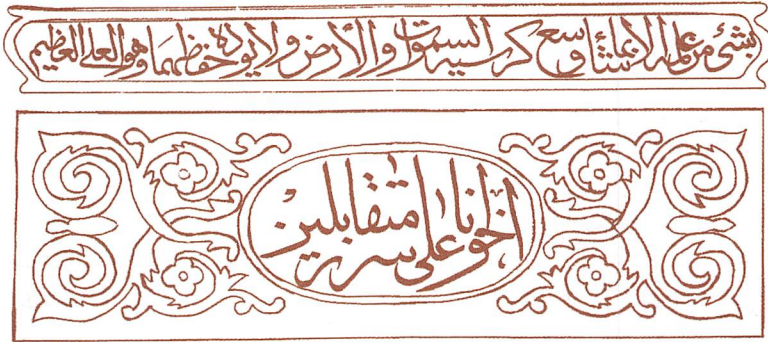 بشئ من علمه الا بما شاء وسع كرسيه السموات والأرض ولا يوده حفظهما وهو العلي العظيم
اخوانا على سرر متقابلين